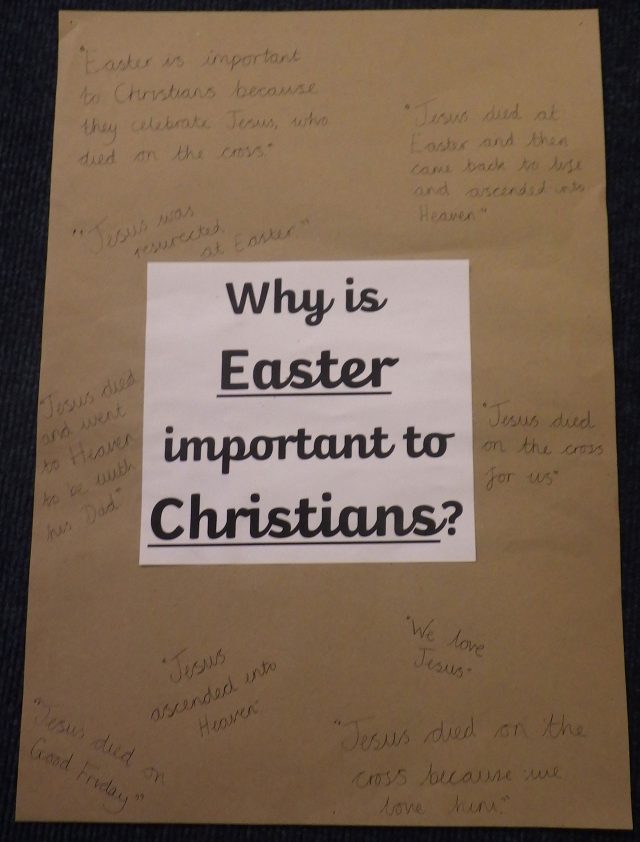 "Easter is important
to Christians because
they celebrate Jesus, who
died on the cross."
"Jesus died at
Easter and then
came back to life
and ascended into
Heaven"
"Jesus was
resurected
at Easter."
Why is
Easter
important to
Christians?
"Jesus died
and went
to Heaven
to be with
his Dad"
"Jesus died
on the cross
for us"
"We love
Jesus"
"Jesus
ascended into
Heaven".
"Jesus died on
Good Friday"
"Jesus died on the
cross because we
love him."